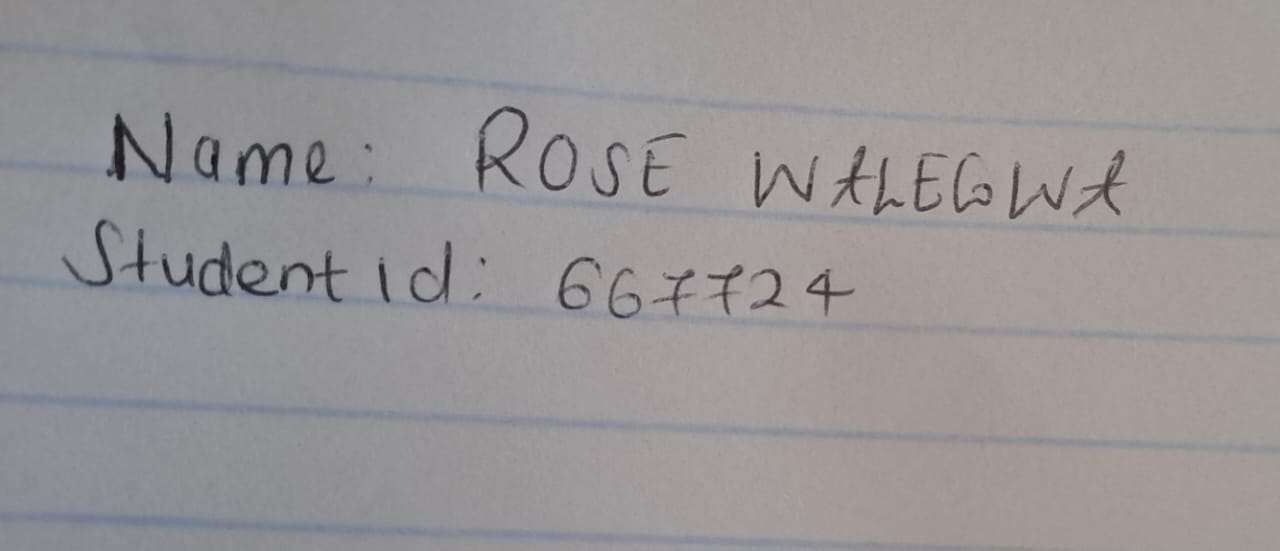 Name: ROSE WALEGWA
Student id: 667724